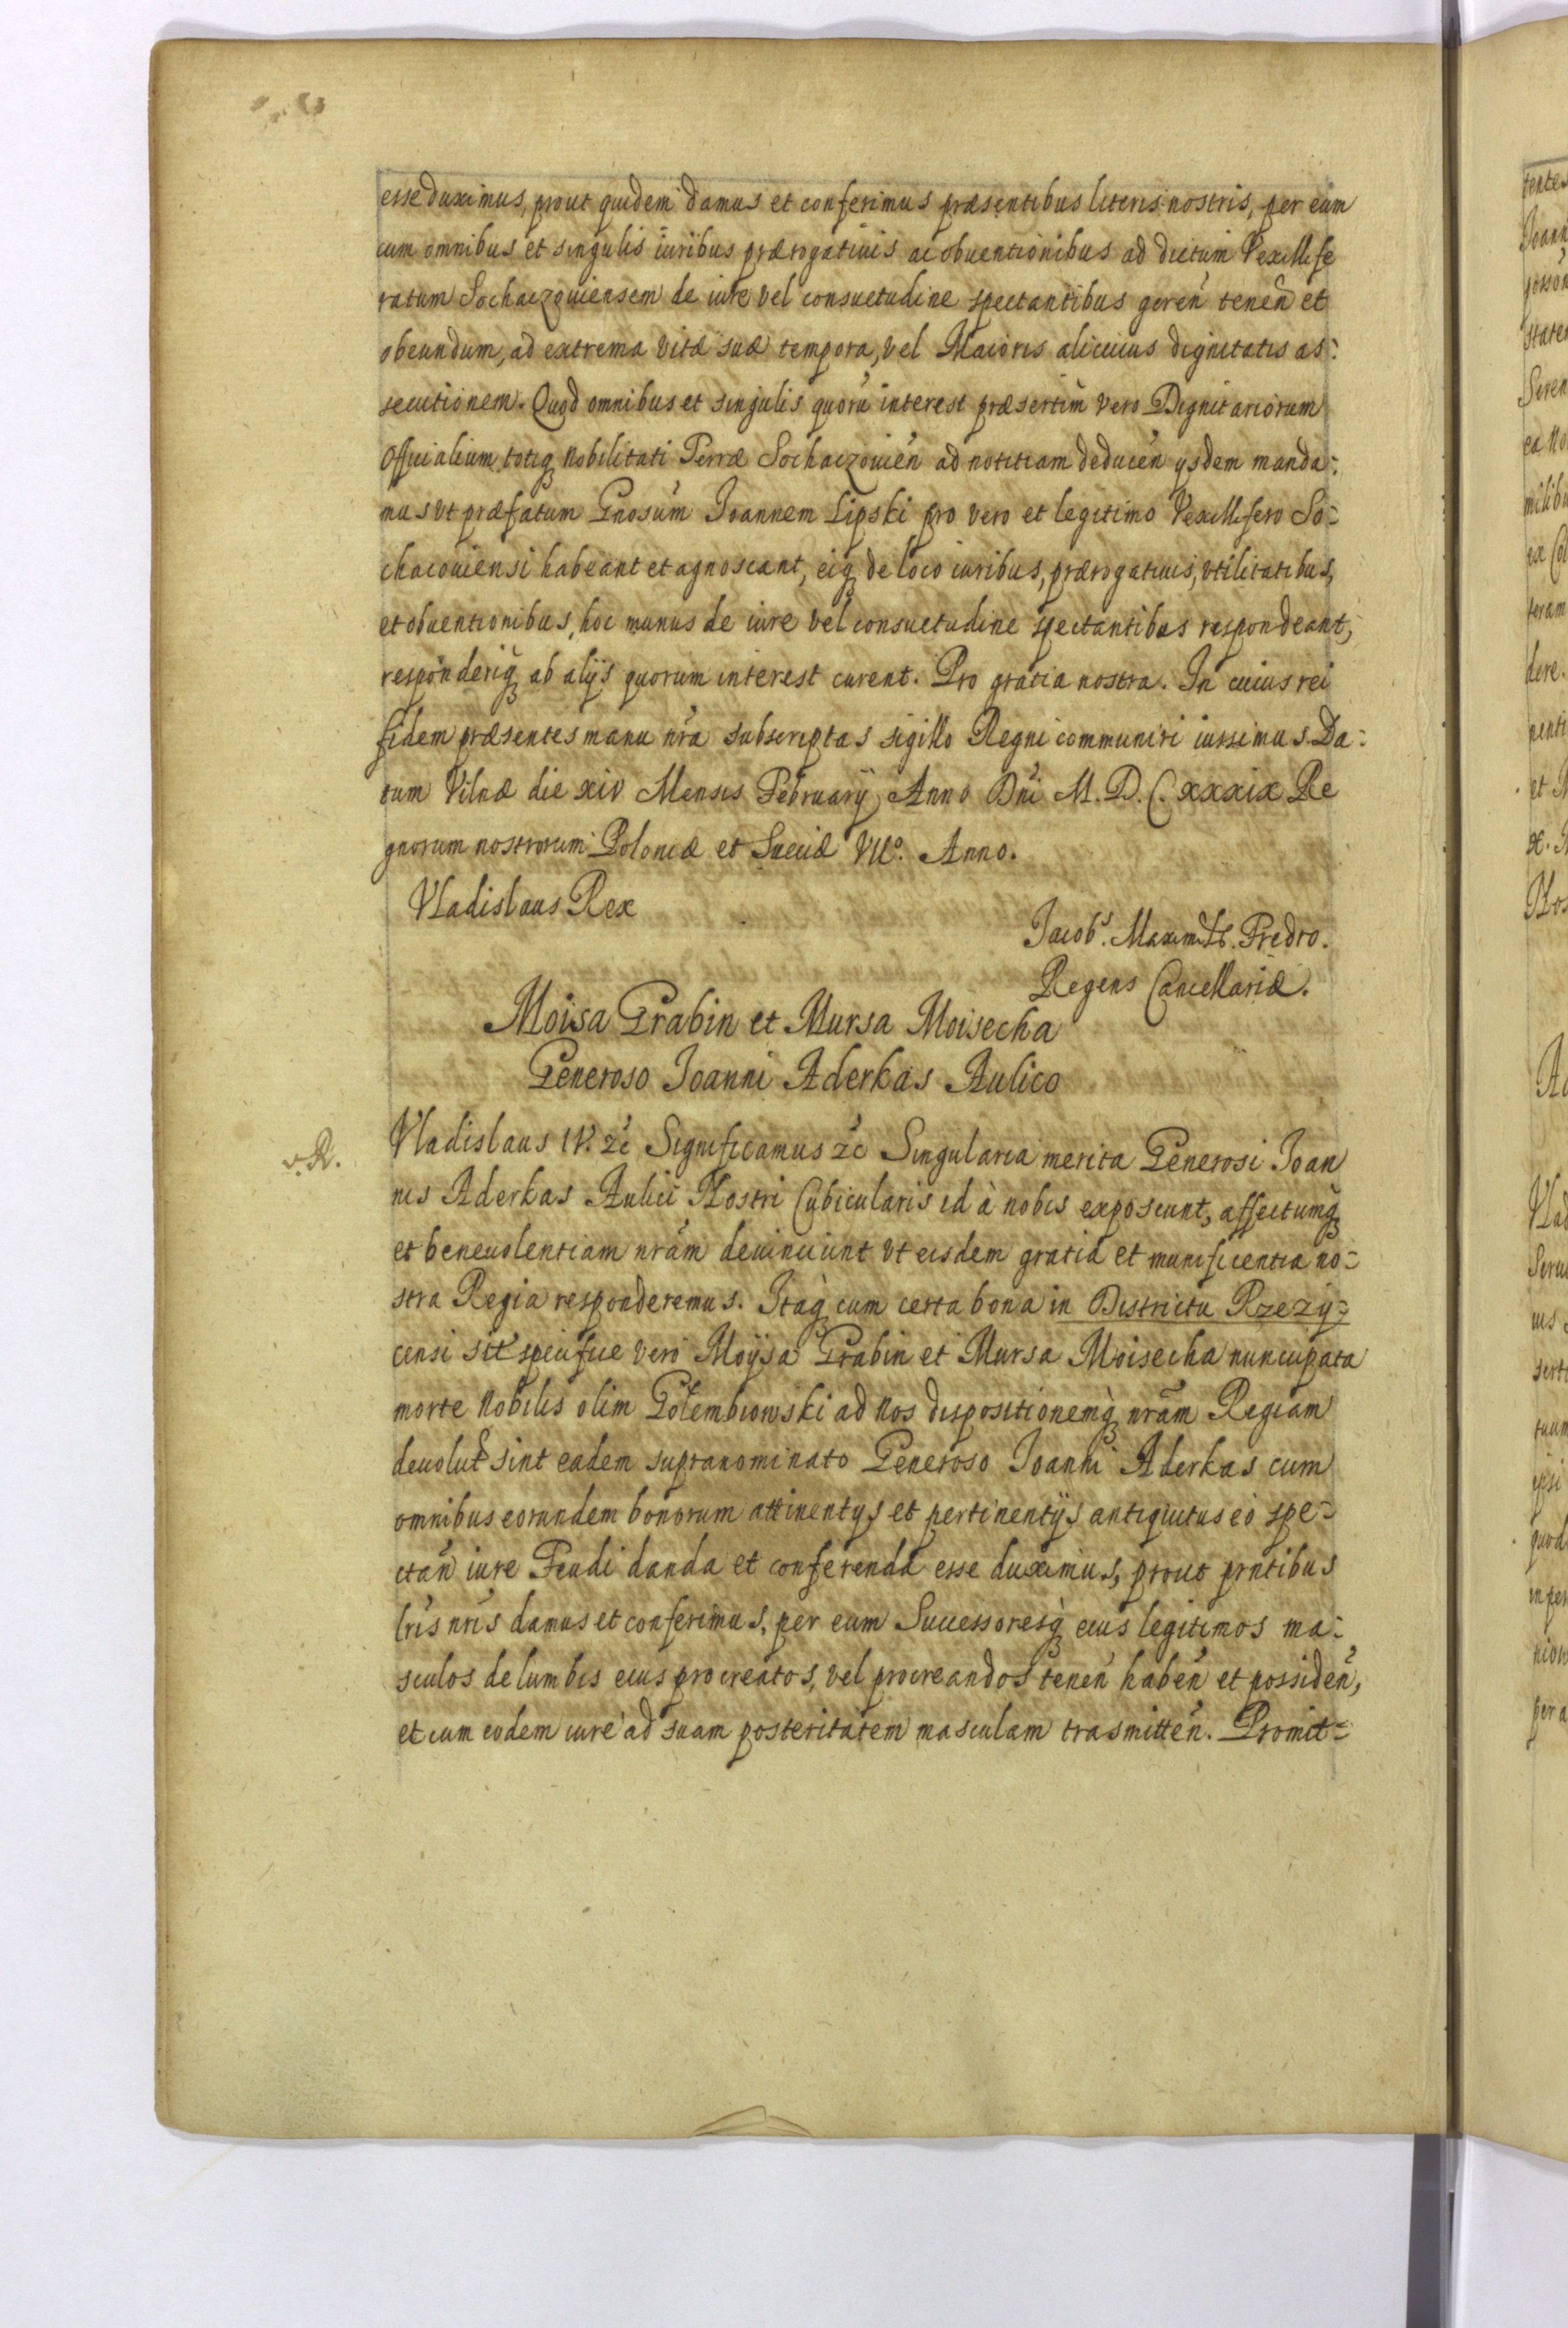 esse duximus, prout quidem damus et conferimus præsentibus literis nostris, per eum
cum omnibus et singulis iuribus prærogatiuis ac obuentionibus ad dictum Vexillife
ratum Sochaczouiensem de iure vel consuetudine spectantibus geren̄ tenen̄ et
obeundum, ad extrema vitæ suæ tempora, vel Maioris alicuius dignitatis as:
secutionem. Quod omnibus et singulis quorū interest præsertim vero Dignitariorum
Officialium, totiq₃ Nobilitati Terræ Sochaczouien̄ ad notitiam deducen̄ ysdem manda:
mus vt præfatum Gnosum̄ Joannem Lipski pro vero et legitimo Vexillifero So:
chacouiensi habeant et agnoscant, eiq₃ de loco iuribus, prærogatiuis, vtilitatibus,
et obuentionibus, hoc munus de iure vel consuetudine spectantibus respondeant,
responderiq₃ ab alijs quorum interest curent. Pro gratia nostra. In cuius rei
fidem præsentes manu nr̄a subscriptas sigillo Regni communiri iussimus. Da:
tum Vilnæ die xiv Mensis February Anno Dn̄i M. D. C. xxxix Re
gnorum nostrorum Poloniæ et Sueciæ VIIº. Anno.
Vladislaus Rex
Jacobˢ. Maximil. Fredro.
Regens Cancellariæ.
Moisa Grabin et Mursa Moisecha
Generoso Joanni Aderkas Aulico
v. R.
Vladislaus IV. ꝛc̄ Significamus ꝛc̄ Singularia merita Generosi Joan
nis Aderkas Aulici Nostri Cubicularis id à nobis exposcunt, affectumq₃
et beneuolentiam nr̄am deuinciunt vt eisdem gratia et munificentia no:
stra Regia responderemus. Itaq₃ cum certa bona in Districtu Rzezy:
censi sit specifice vero Moysa Grabin et Mursa Moisecha nuncupata
morte Nobilis olim Golembiowski ad Nos dispositionemq₃ nr̄am Regiam
deuolut sint eadem supranominato Generoso Joanni Aderkas cum
omnibus eorundem bonorum attinentys et pertinentijs antiquitus eo spe:
ctan̄ iure Feudi danda et conferenda esse duximus, prout prn̄tibus
lr̄is nr̄is damus et conferimus, per eum Successoresq₃ eius legitimos ma:
sculos de lumbis eius procreatos, vel procreandos tenen̄ haben̄ et possiden̄,
et cum eodem iure ad suam posteritatem masculam trasmitten̄. Promit: